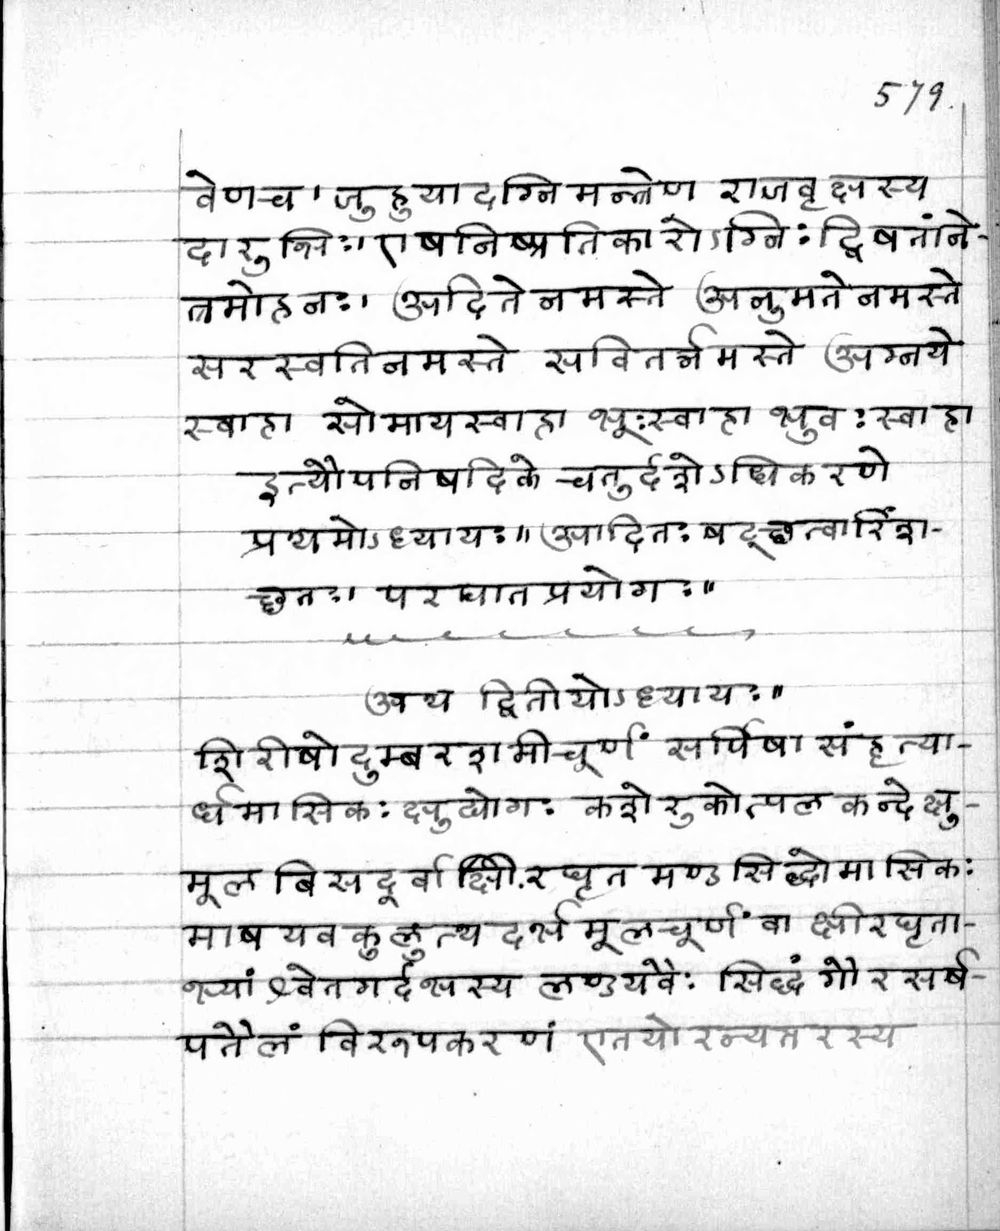 579.
वेण च। जुहुयादग्निमन्त्रेण राजवृक्षस्य
दारुभिः। एष निष्प्रतिकारोऽग्निः द्विषतां ने-
त्रमोहनः। अदिते नमस्ते अनुमते नमस्ते
सरस्वति नमस्ते सवितर्न्नमस्ते अग्नये
स्वाहा सोमाय स्वाहा भूःस्वाहा भुवःस्वाहा
इत्यौपनिषदिके चतुर्दशेऽधिकरणे
प्रथमोऽध्यायः॥ आदितः षट्चत्वारिंश-
च्छतः। परघातप्रयोगः॥
अथ द्वितीयोऽध्यायः॥
शिरीषोदुम्बरशमीचूर्णं सर्पिषा संहृत्या-
र्धमासिकः क्षुद्योगः कशेरुकोत्पलकन्देक्षु-
मूलबिसदूर्वाक्षीरघृतमण्डसिद्धो मासिकः
माषयवकुलुत्थदर्भमूलचूर्णं वा क्षीरघृता-
भ्यां श्वेतगर्दभस्य लण्डयवैः सिद्धं गौरसर्ष-
पतैलं विरूपकरणं एतयोरन्यतरस्य